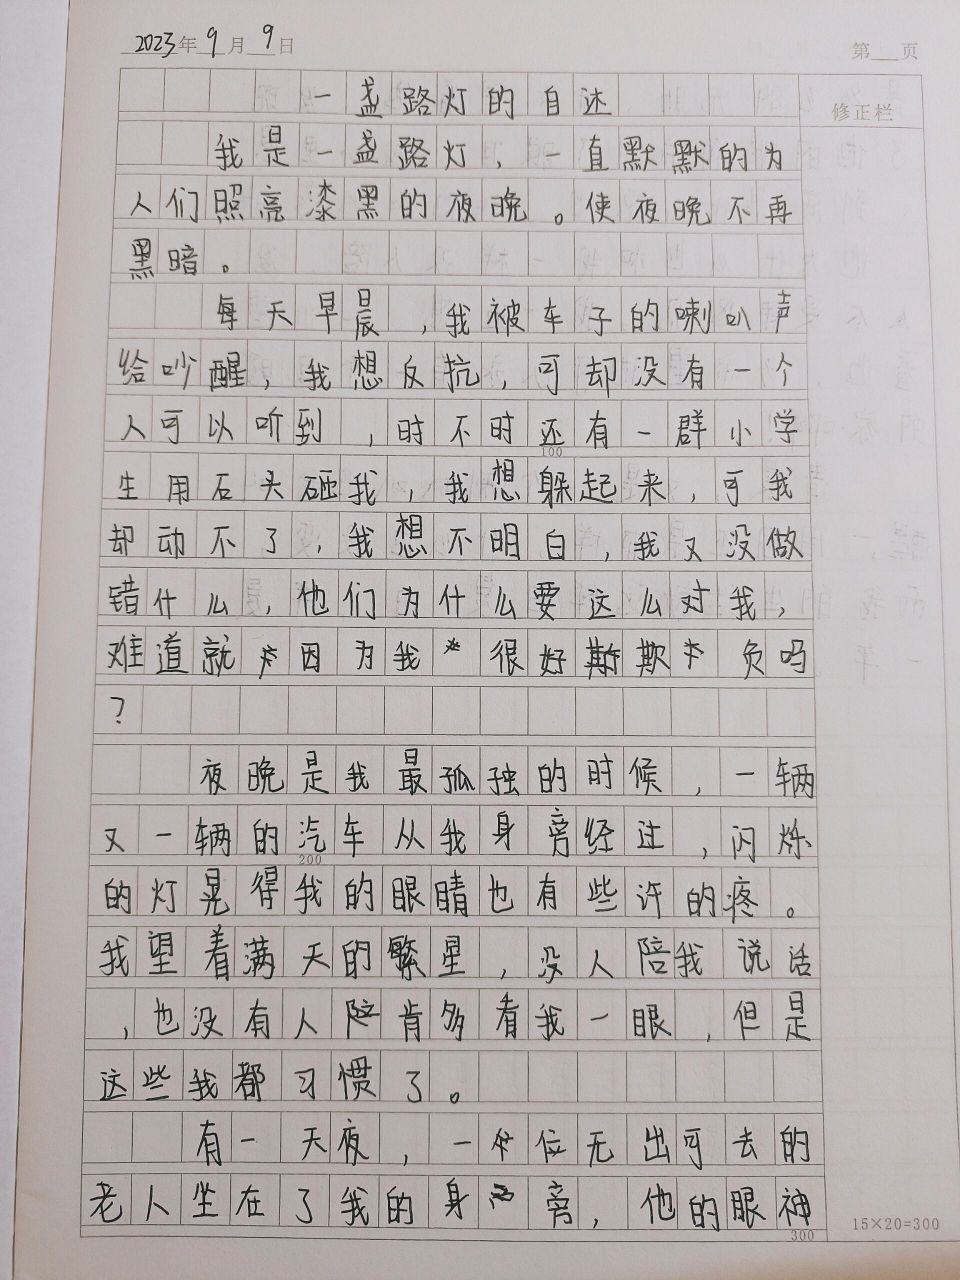 2023年9月9日
第 页
一盏路灯的自述
修正栏
我是一盏路灯，一直默默的为
人们照亮漆黑的夜晚。使夜晚不再
黑暗。
每天早晨，我被车子的喇叭声
给吵醒，我想反抗，可却没有一个
人可以听到，时不时还有一群小学
100
生用石头砸我，我想躲起来，可我
却动不了，我想不明白，我又没做
错什么，他们为什么要这么对我，
难道就因为我很好欺负吗
？
夜晚是我最孤独的时候，一辆
又一辆的汽车从我身旁经过，闪烁
200
的灯晃得我的眼睛也有些许的疼。
我望着满天的繁星，没人陪我说话
，也没有人肯多看我一眼，但是
这些我都习惯了。
有一天夜，一位无出可去的
老人坐在了我的身旁，他的眼神
15×20=300
300